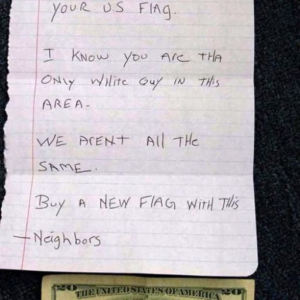 YOUR US FlAg.
I KNOW YOU ARE THA
ONly White Guy IN THIS
AREA-
WE ARENT All THE
SAME.
Buy A NEW FlAG WITH THIS
- Neighbors
20 THE UNITED STATES OF AMERICA 20